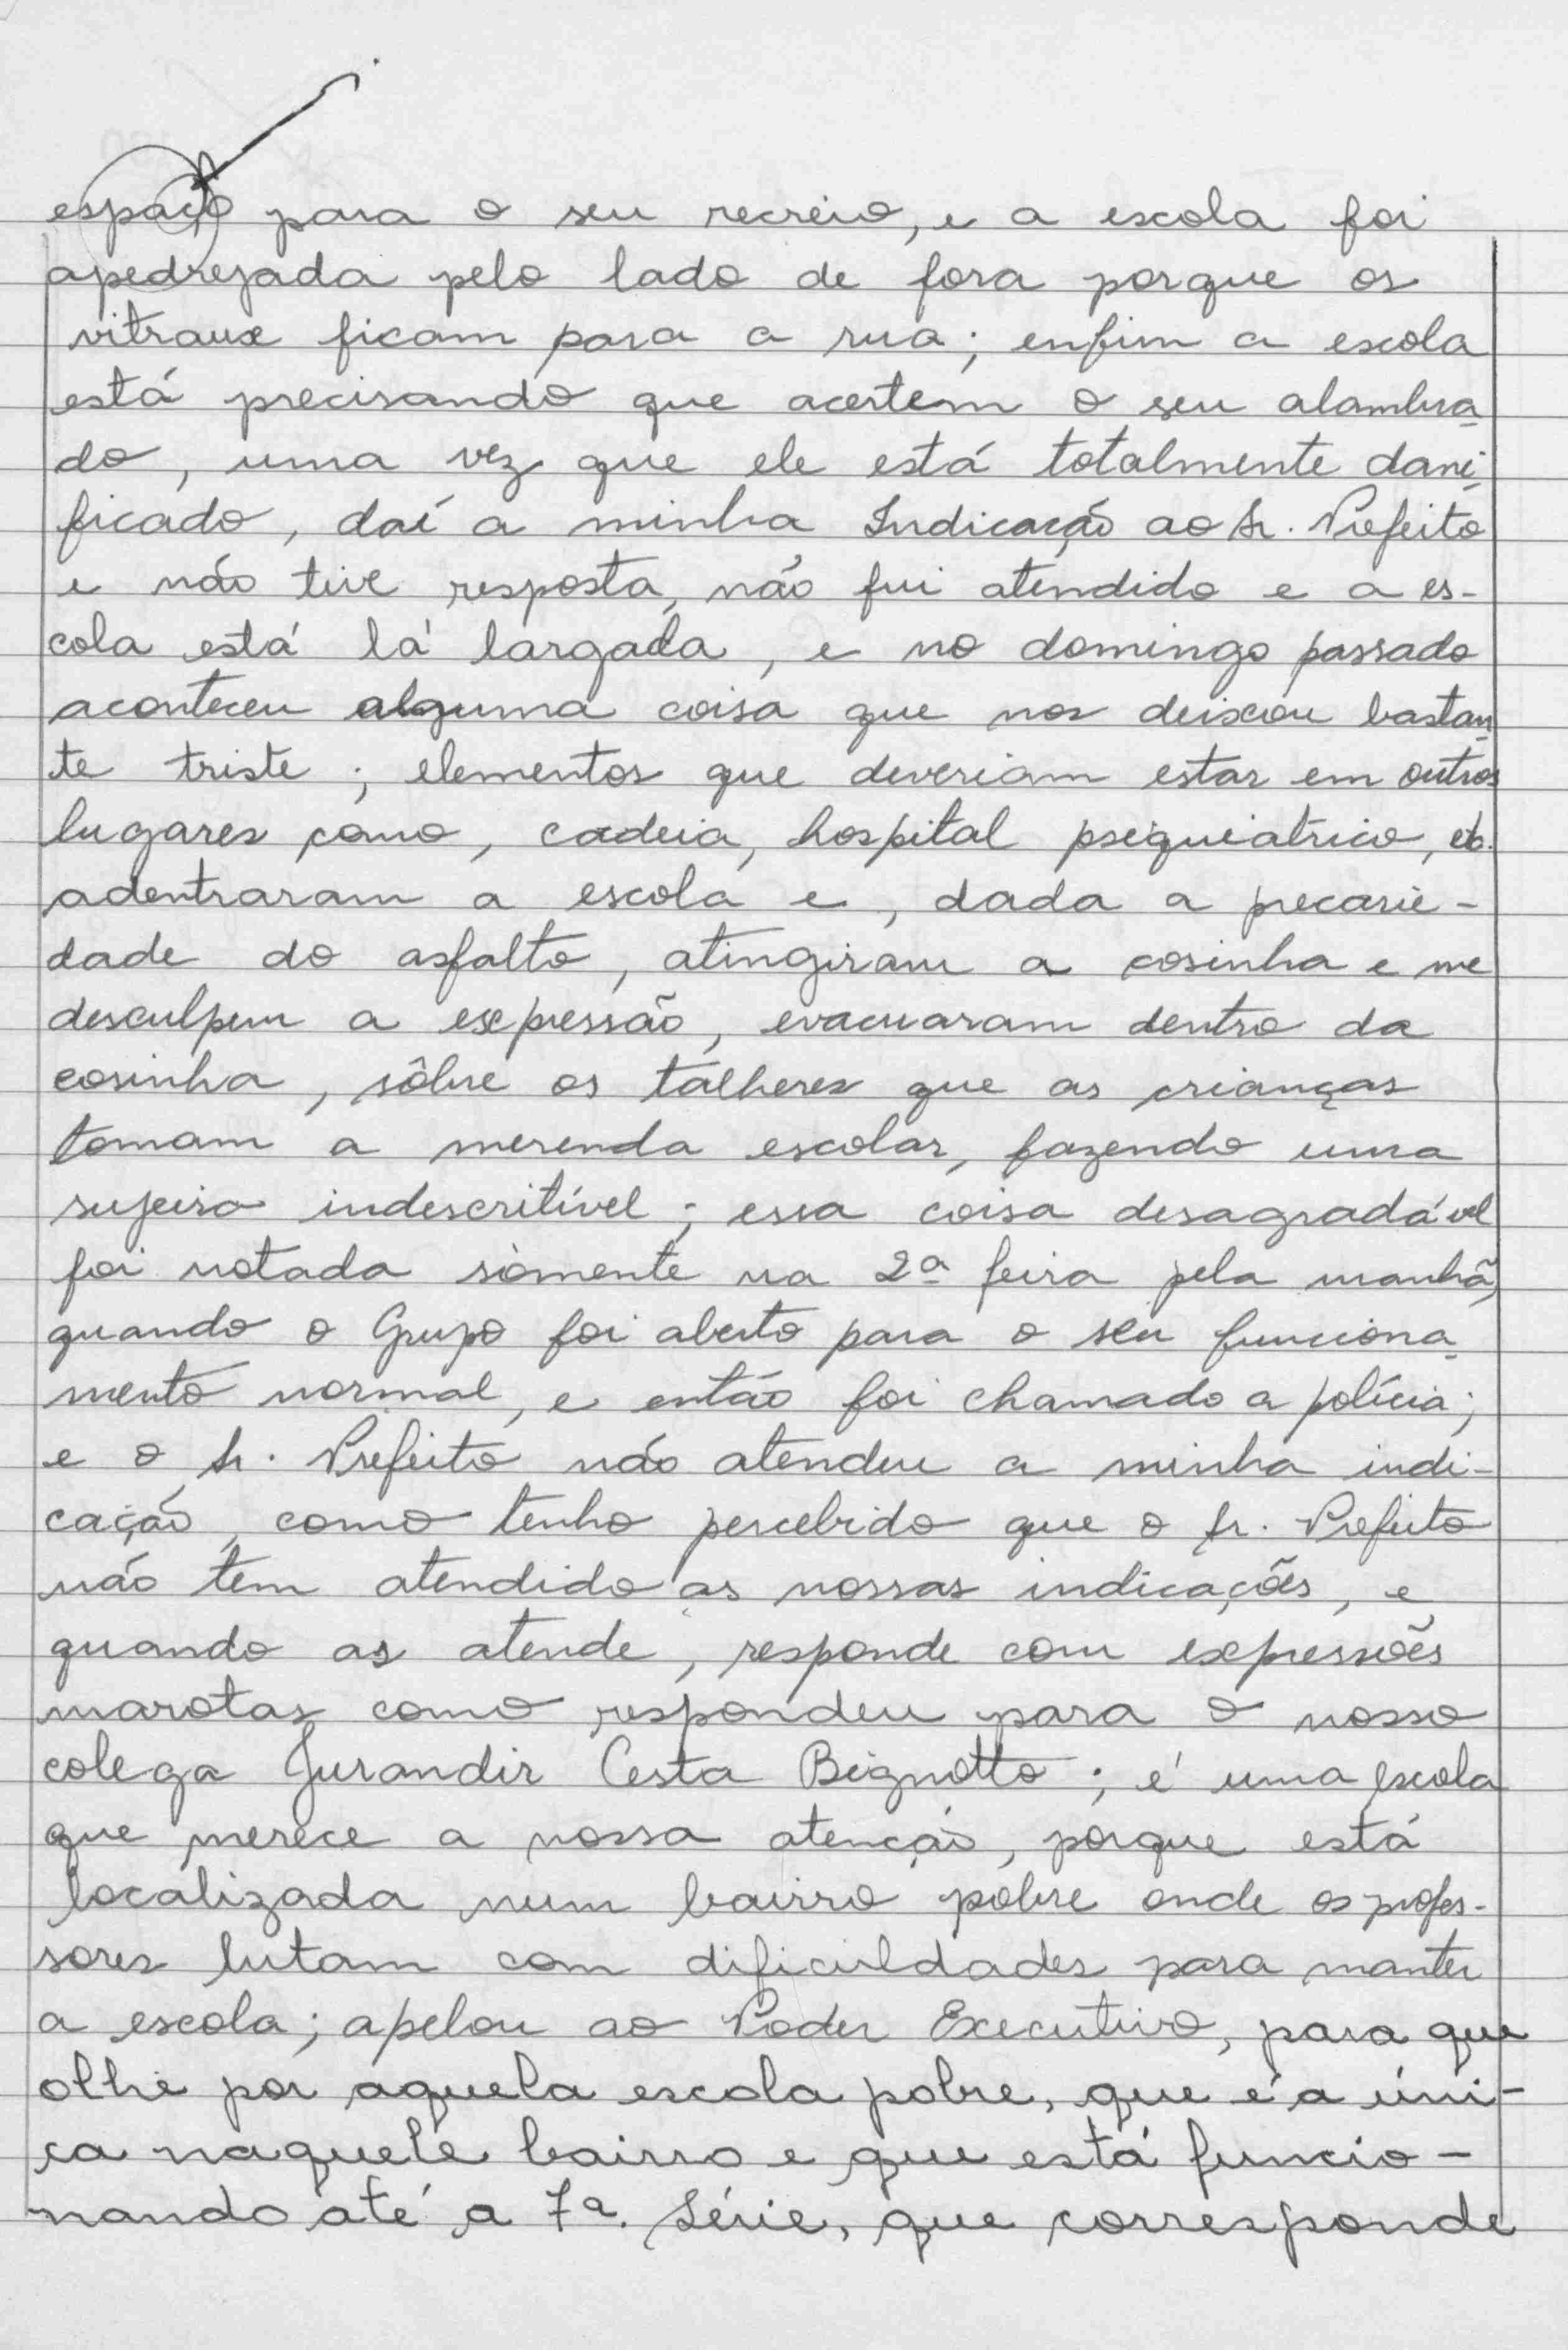 espaço para o seu recreio, e a escola foi
apedrejada pelo lado de fora porque os
vitraux ficam para a rua; enfim a escola
está precisando que acertem o seu alambra-
do, uma vez que ele está totalmente dani-
ficado, daí a minha Indicação ao Sr. Prefeito
e não tive resposta, não fui atendido e a es-
cola está lá largada, e no domingo passado
aconteceu alguma coisa que nos deixou bastan-
te triste; elementos que deveriam estar em outros
lugares como, cadeia, hospital psiquiatrico, etc.
adentraram a escola e, dada a precarie-
dade do asfalto, atingiram a cosinha e me
desculpem a expressão, evacuaram dentro da
cosinha, sôbre os talheres que as crianças
tomam a merenda escolar, fazendo uma
sujeira indescritível; essa coisa desagradável
foi notada sòmente na 2ª feira pela manhã,
quando o Grupo foi aberto para o seu funciona-
mento normal, e então foi chamado a polícia;
e o Sr. Prefeito não atendeu a minha indi-
cação, como tenho percebido que o Sr. Prefeito
não tem atendido as nossas indicações, e
quando as atende, responde com expressões
marotas como respondeu para o nosso
colega Jurandir Cesta Bignotto; é uma escola
que merece a nossa atenção, porque está
localizada num bairro pobre onde os profes-
sores lutam com dificuldades para manter
a escola; apelou ao Poder Executivo, para que
olhe por aquela escola pobre, que é a úni-
ca naquele bairro e que está funcio-
nando até a 7ª. Série, que corresponde